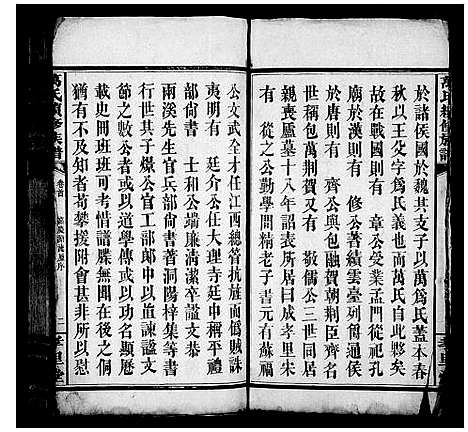 萬氏續修族譜
於諸侯國於魏其支子以萬爲氏蓋本春
秋以王父字爲氏義也而萬氏自此夥矣
故在戰國則有 章公受業孟門從祀孔
廟於漢則有 修公著績雲臺列爵通侯
於唐則有 齊公與包融賀朝荆臣齊名
世稱包萬荆賀又有 敬儒公三世同居
親喪廬墓十八年詔表所居曰成孝里宋
有 從之公勤學問精老子書元有蘇福
公文武全才任江西總管抗旌而僞賊誅
夷明有 廷介公任大理寺廷中稱平禮
部尚書 士和公端廉清潔卒諡文恭
兩溪先生官兵部尚書著洞陽梓集等書
以世其子燉公官工部郎中以追諫諡文
節之數公者或以道學傳或以功名顯歷
載史冊班班可考惜譜牒無聞在後之侗
猶有不及知者苟攀援附會甚非所以慰
萬氏續修族譜
卷首